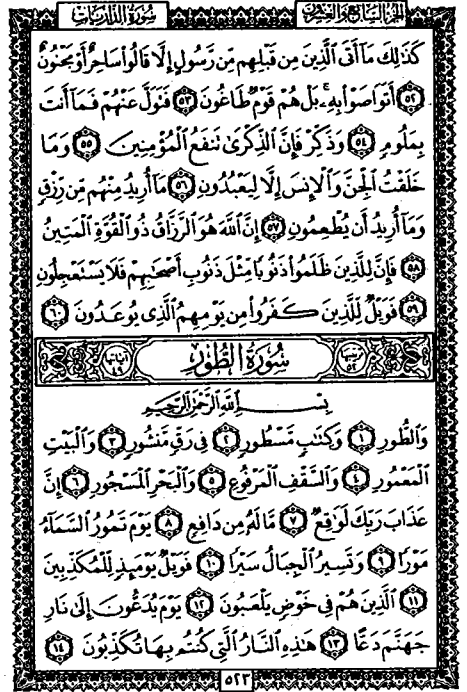 الجزء السابع والعشرون
سورة الذاريات
كَذَٰلِكَ مَآ أَتَى ٱلَّذِينَ مِن قَبۡلِهِم مِّن رَّسُولٍ إِلَّا قَالُواْ سَاحِرٌ أَوۡ مَجۡنُونٌ
٥٢ أَتَوَاصَوۡاْ بِهِۦۚ بَلۡ هُمۡ قَوۡمٞ طَاغُونَ ٥٣ فَتَوَلَّ عَنۡهُمۡ فَمَآ أَنتَ
بِمَلُومٖ ٥٤ وَذَكِّرۡ فَإِنَّ ٱلذِّكۡرَىٰ تَنفَعُ ٱلۡمُؤۡمِنِينَ ٥٥ وَمَا
خَلَقۡتُ ٱلۡجِنَّ وَٱلۡإِنسَ إِلَّا لِيَعۡبُدُونِ ٥٦ مَآ أُرِيدُ مِنۡهُم مِّن رِّزۡقٖ
وَمَآ أُرِيدُ أَن يُطۡعِمُونِ ٥٧ إِنَّ ٱللَّهَ هُوَ ٱلرَّزَّاقُ ذُو ٱلۡقُوَّةِ ٱلۡمَتِينُ
٥٨ فَإِنَّ لِلَّذِينَ ظَلَمُواْ ذَنُوبٗا مِّثۡلَ ذَنُوبِ أَصۡحَٰبِهِمۡ فَلَا يَسۡتَعۡجِلُونِ
٥٩ فَوَيۡلٞ لِّلَّذِينَ كَفَرُواْ مِن يَوۡمِهِمُ ٱلَّذِي يُوعَدُونَ ٦٠
ترتيبها ٥٢
سُورَةُ الطُّورِ
آياتها ٤٩
بِسۡمِ ٱللَّهِ ٱلرَّحۡمَٰنِ ٱلرَّحِيمِ
وَٱلطُّورِ ١ وَكِتَٰبٖ مَّسۡطُورٖ ٢ فِي رَقّٖ مَّنشُورٖ ٣ وَٱلۡبَيۡتِ
ٱلۡمَعۡمُورِ ٤ وَٱلسَّقۡفِ ٱلۡمَرۡفُوعِ ٥ وَٱلۡبَحۡرِ ٱلۡمَسۡجُورِ ٦ إِنَّ
عَذَابَ رَبِّكَ لَوَٰقِعٞ ٧ مَّا لَهُۥ مِن دَافِعٖ ٨ يَوۡمَ تَمُورُ ٱلسَّمَآءُ
مَوۡرٗا ٩ وَتَسِيرُ ٱلۡجِبَالُ سَيۡرٗا ١٠ فَوَيۡلٞ يَوۡمَئِذٖ لِّلۡمُكَذِّبِينَ
١١ ٱلَّذِينَ هُمۡ فِي خَوۡضٖ يَلۡعَبُونَ ١٢ يَوۡمَ يُدَعُّونَ إِلَىٰ نَارِ
جَهَنَّمَ دَعًّا ١٣ هَٰذِهِ ٱلنَّارُ ٱلَّتِي كُنتُم بِهَا تُكَذِّبُونَ ١٤
٥٢٣